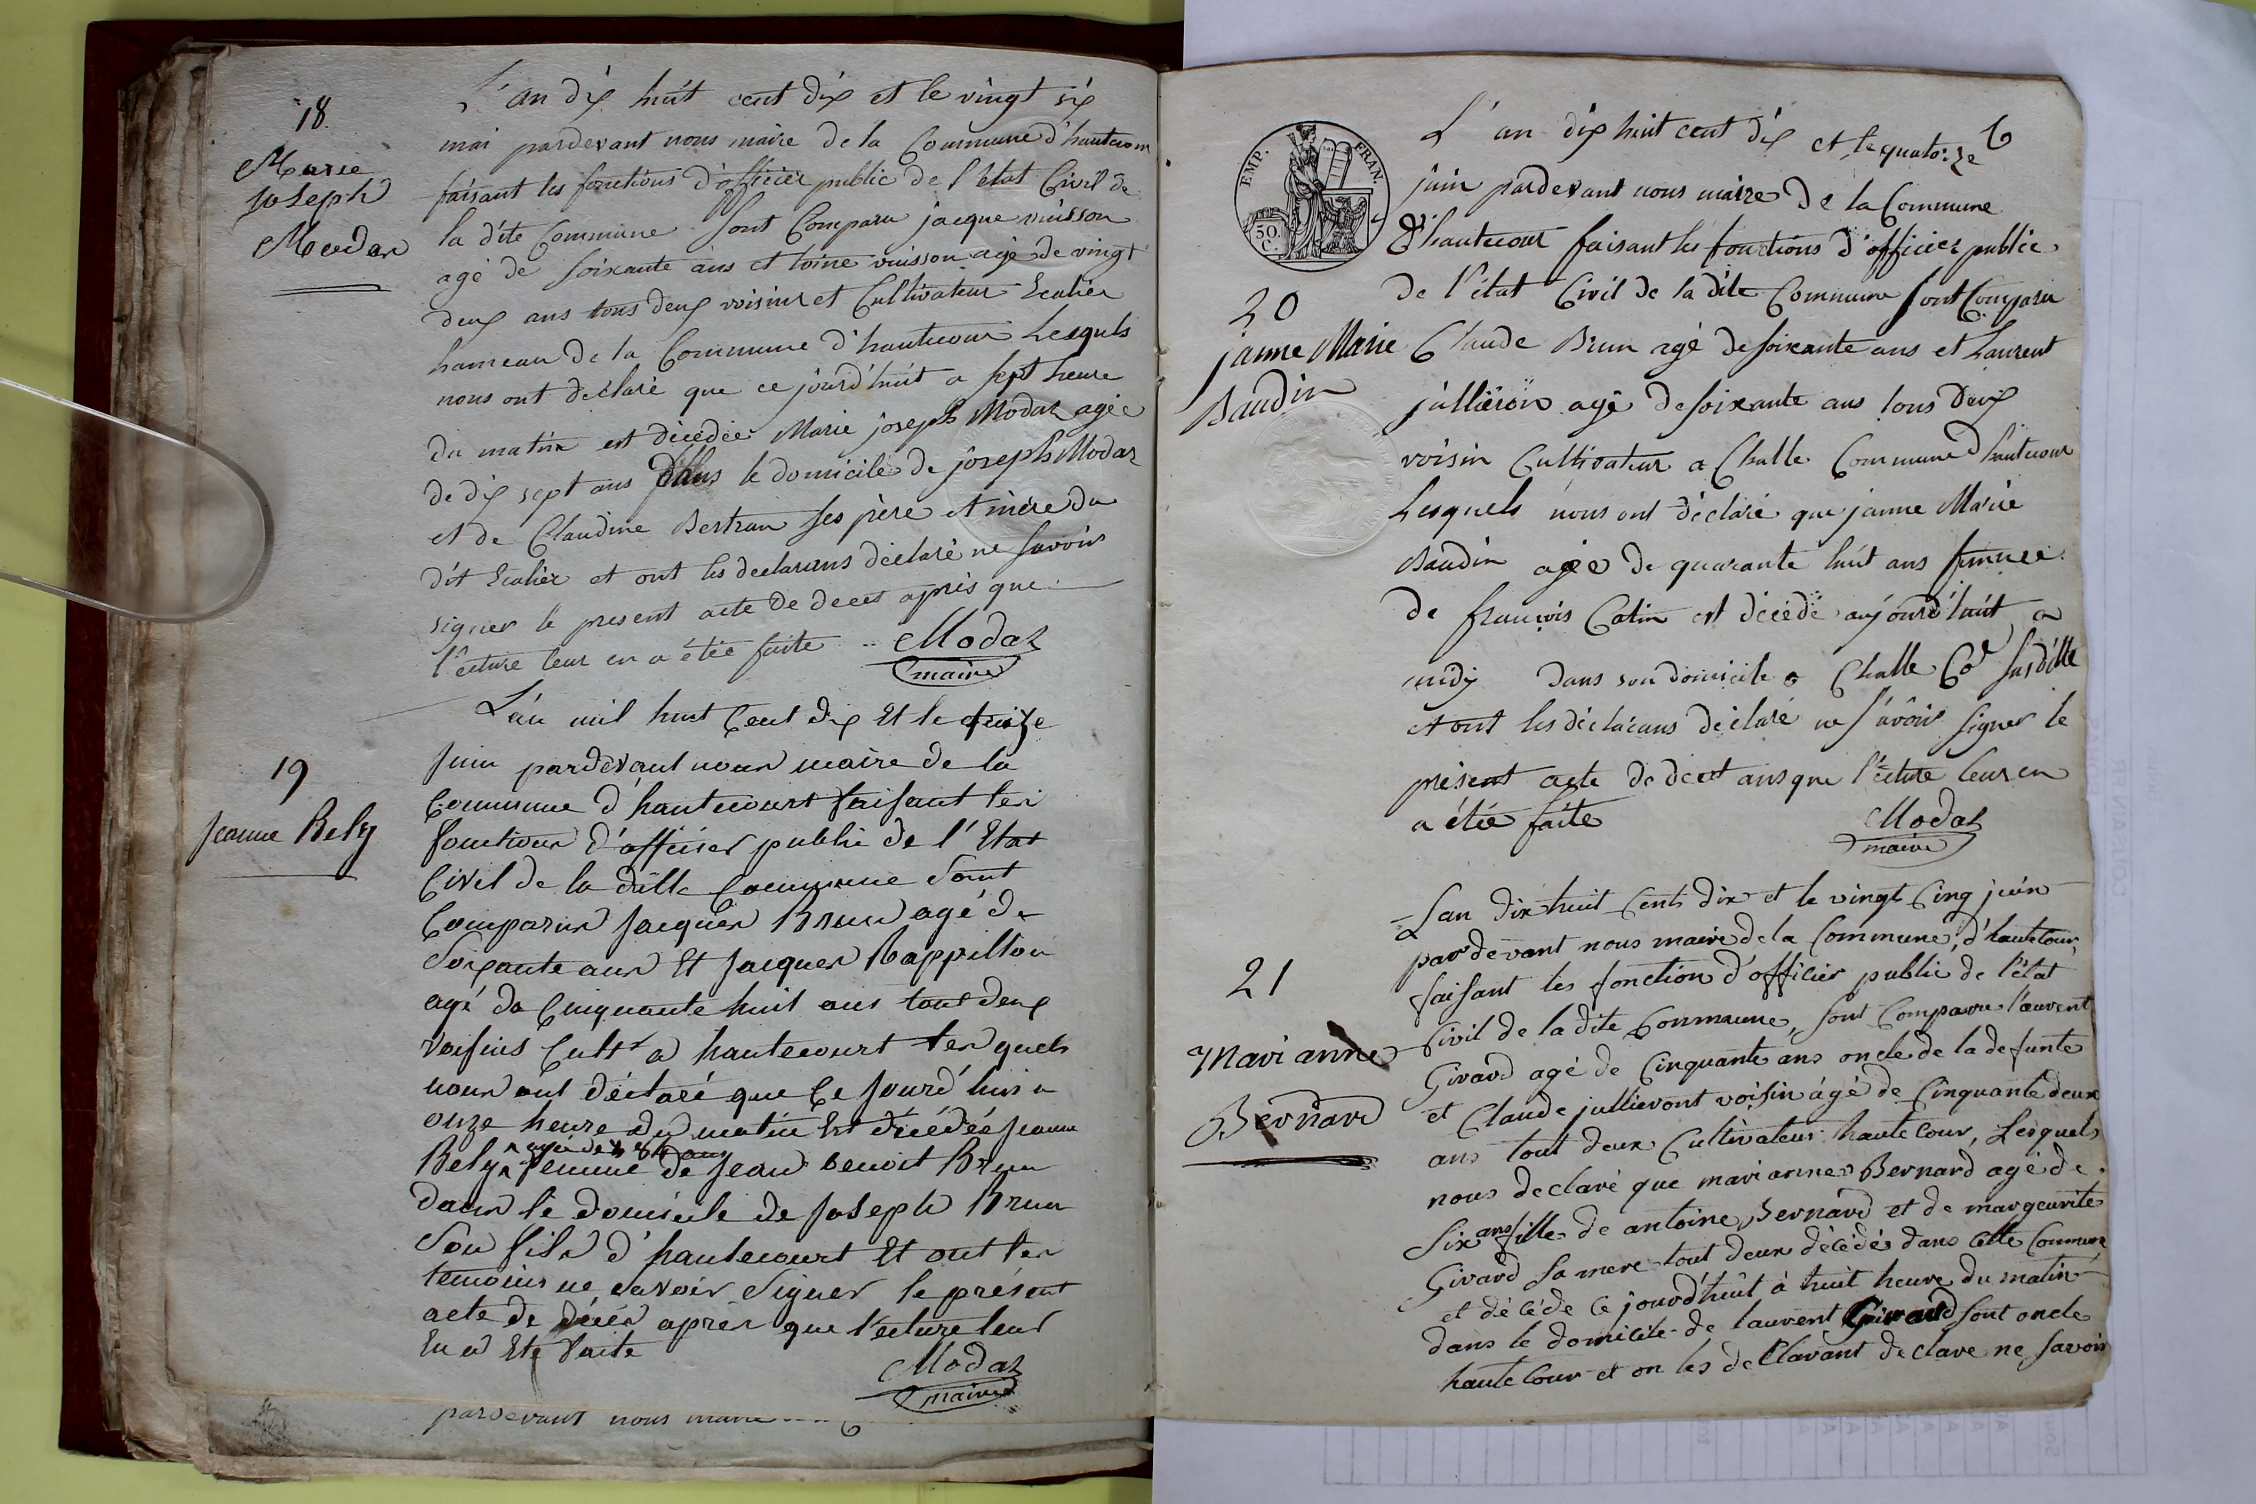 18
Marie
Joseph
Modar
L'an dix huit cent dix et le vingt six
mai pardevant nous maire de la Commune d'hautecour
faisant les fonctions d'officier public de l'état Civil de
la dite Commune sont Comparu jacque vuisson
agé de soixante ans et toine vuisson agé de vingt
deux ans tous deux voisins et Cultivateur Ecalier
hameau de la Commune d'hautecour Lesquels
nous ont déclaré que ce jourd'huit a sept heure
du matin est décédée Marie joseph Modaz agée
de dix sept ans dans le domicile de joseph Modaz
et de Claudine Bertran ses père et mère du
dit Ecalier et ont les declarans déclaré ne savoir
signer le present acte de deces après que
l'ecture leur en a étée faite .. Modaz
maire
19
Jeanne Bely
L'an mil huit Cent dix Et le treize
Juin pardevant nous maire de la
Commune d'hautecourt faisant les
fonctions d'officier public de l'Etat
Civil de la ditte Commune Sont
Comparus Jacques Brun agé de
Soixante ans Et Jacques Rappillon
agé de Cinquante huit ans tout deux
voisins Cultr a hautecourt les quels
nous ont déclaré que Ce Jourd'hui a
onze heure du matin Est décédée Jeanne
agée de 84 ans
Bely femme de Jean benoit Brun
dans le domicile de Joseph Brun
Son fils d'hautecourt Et ont les
temoins ne savoir Signer le présent
acte de décès après que l'ecture leur
En a Eté faite
Modaz
maire
pardevant nous maire
EMP. FRAN.
50. C.
6
20
janne Marie
Baudin
L'an dix huit cent dix et le quatorze
juin pardevant nous maire de la Commune
d'hautecour faisant les fonctions d'officier public
de l'état Civil de la dite Commune sont Comparu
Claude Brun agé de soixante ans et Laurent
jullieron agé de soixante ans tous deux
voisin Cultivateur a Challe Commune d'hautecour
Lesquels nous ont déclaré que janne Marie
Baudin agée de quarante huit ans femme
de françois Catin est décédé aujourd'huit a
midy dans son domicile a Challe Ce susditte
et ont les déclarans déclaré ne s'avoir signer le
présent acte de decet ansque l'ecture leur en
a étée faite
Modaz
maire
21
Mari anne
Bernard
Lan dix huit Cents dix et le vingt Cinq juin
par devant nous maire de la Commune, d'hautecour,
faisant les fonction d'officier public de l'état
Civil de la dite Commune, sont Comparu l'auvent
Girard agé de Cinquante ans oncle de la defunte
et Claude jullieront voisin ágé de Cinquante deux
ans tout deux Cultivateur hautecour, Lesquels
nous declaré que marianne Bernard agé de
six ans fille de antoine Bernard et de margeurite
Girard sa mere tout deux décédés dans Cette Commune
et décéde Ce jourd'huit à huit heure du matin
dans le domicile de lauvent Girard sont oncle
hautecour et on les de Clarant de clare ne savoir